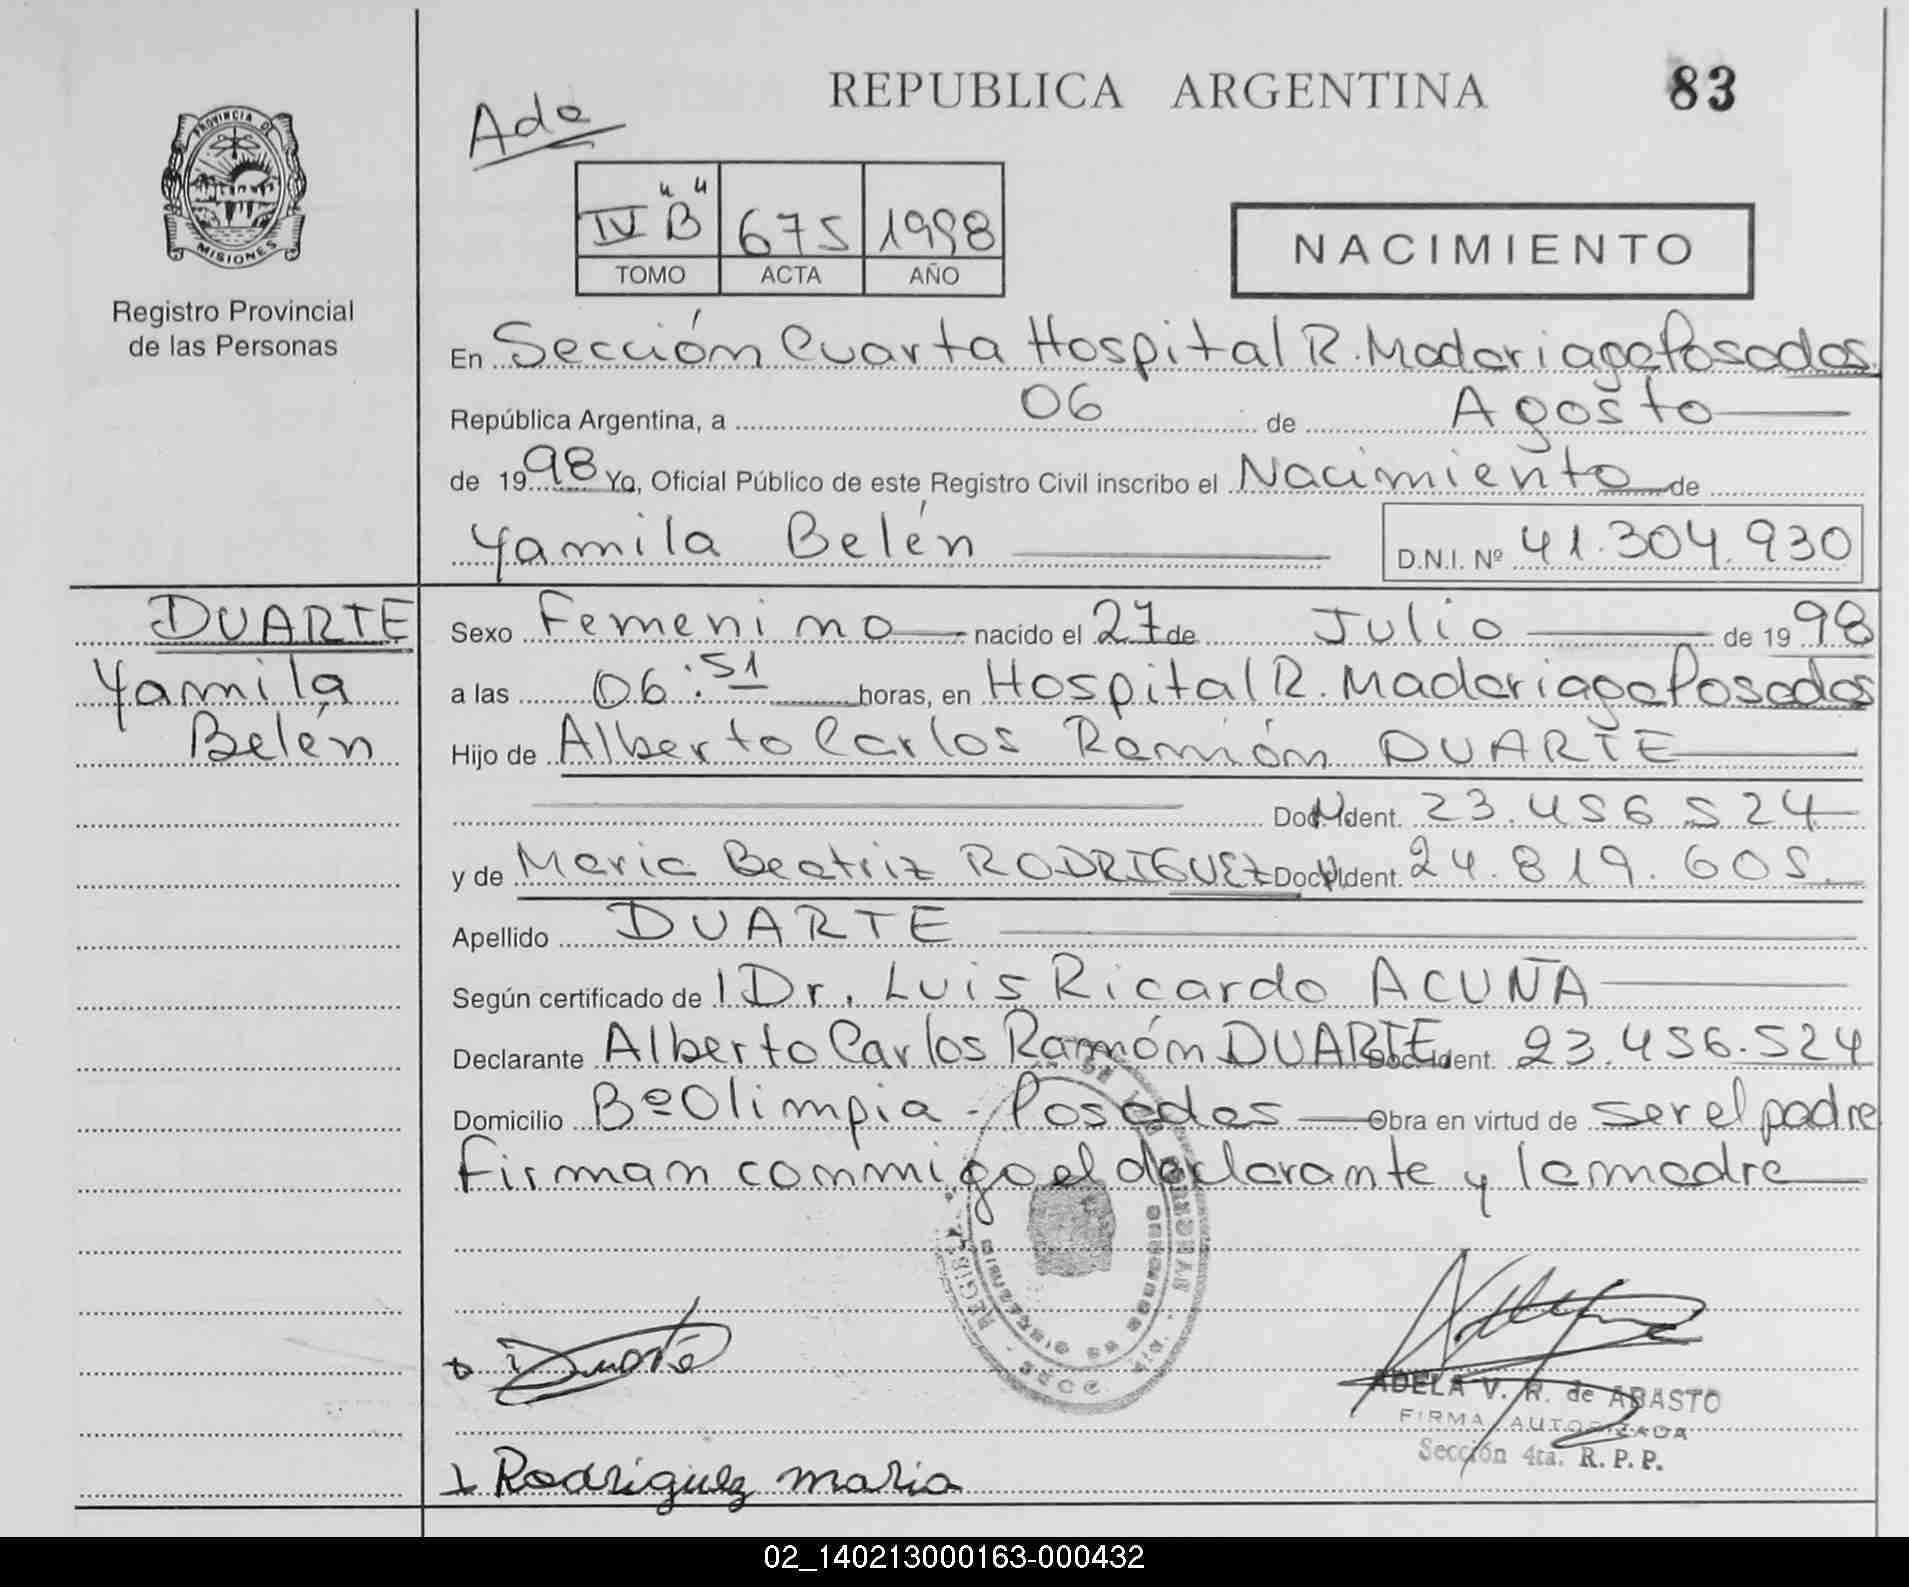 REPUBLICA ARGENTINA 83
Ada
PROVINCIA DE
MISIONES
Registro Provincial
de las Personas
IV "B" 675 1998
TOMO ACTA AÑO
NACIMIENTO
En Sección Cuarta Hospital R. Madariaga Posadas
República Argentina, a 06 de Agosto
de 1998 Yo, Oficial Público de este Registro Civil inscribo el Nacimiento de
Yamila Belén D.N.I. Nº 41.304.930
DUARTE
Yamila
Belén
Sexo Femenino nacido el 27 de Julio de 1998
a las 06:51 horas, en Hospital R. Madariaga Posadas
Hijo de Alberto Carlos Ramón DUARTE
Doc. Ident. 23.456.524
y de Maria Beatriz RODRIGUEZ Doc. Ident. 24.819.605.
Apellido DUARTE
Según certificado de Dr. Luis Ricardo ACUÑA
Declarante Alberto Carlos Ramón DUARTE Doc. Ident. 23.456.524
Domicilio Bº Olimpia - Posadas Obra en virtud de ser el padre
Firman conmigo el declarante y la madre
Duarte
ADELA V. R. de ABASTO
FIRMA AUTORIZADA
Sección 4ta. R. P. P.
Rodriguez maria
02_140213000163-000432